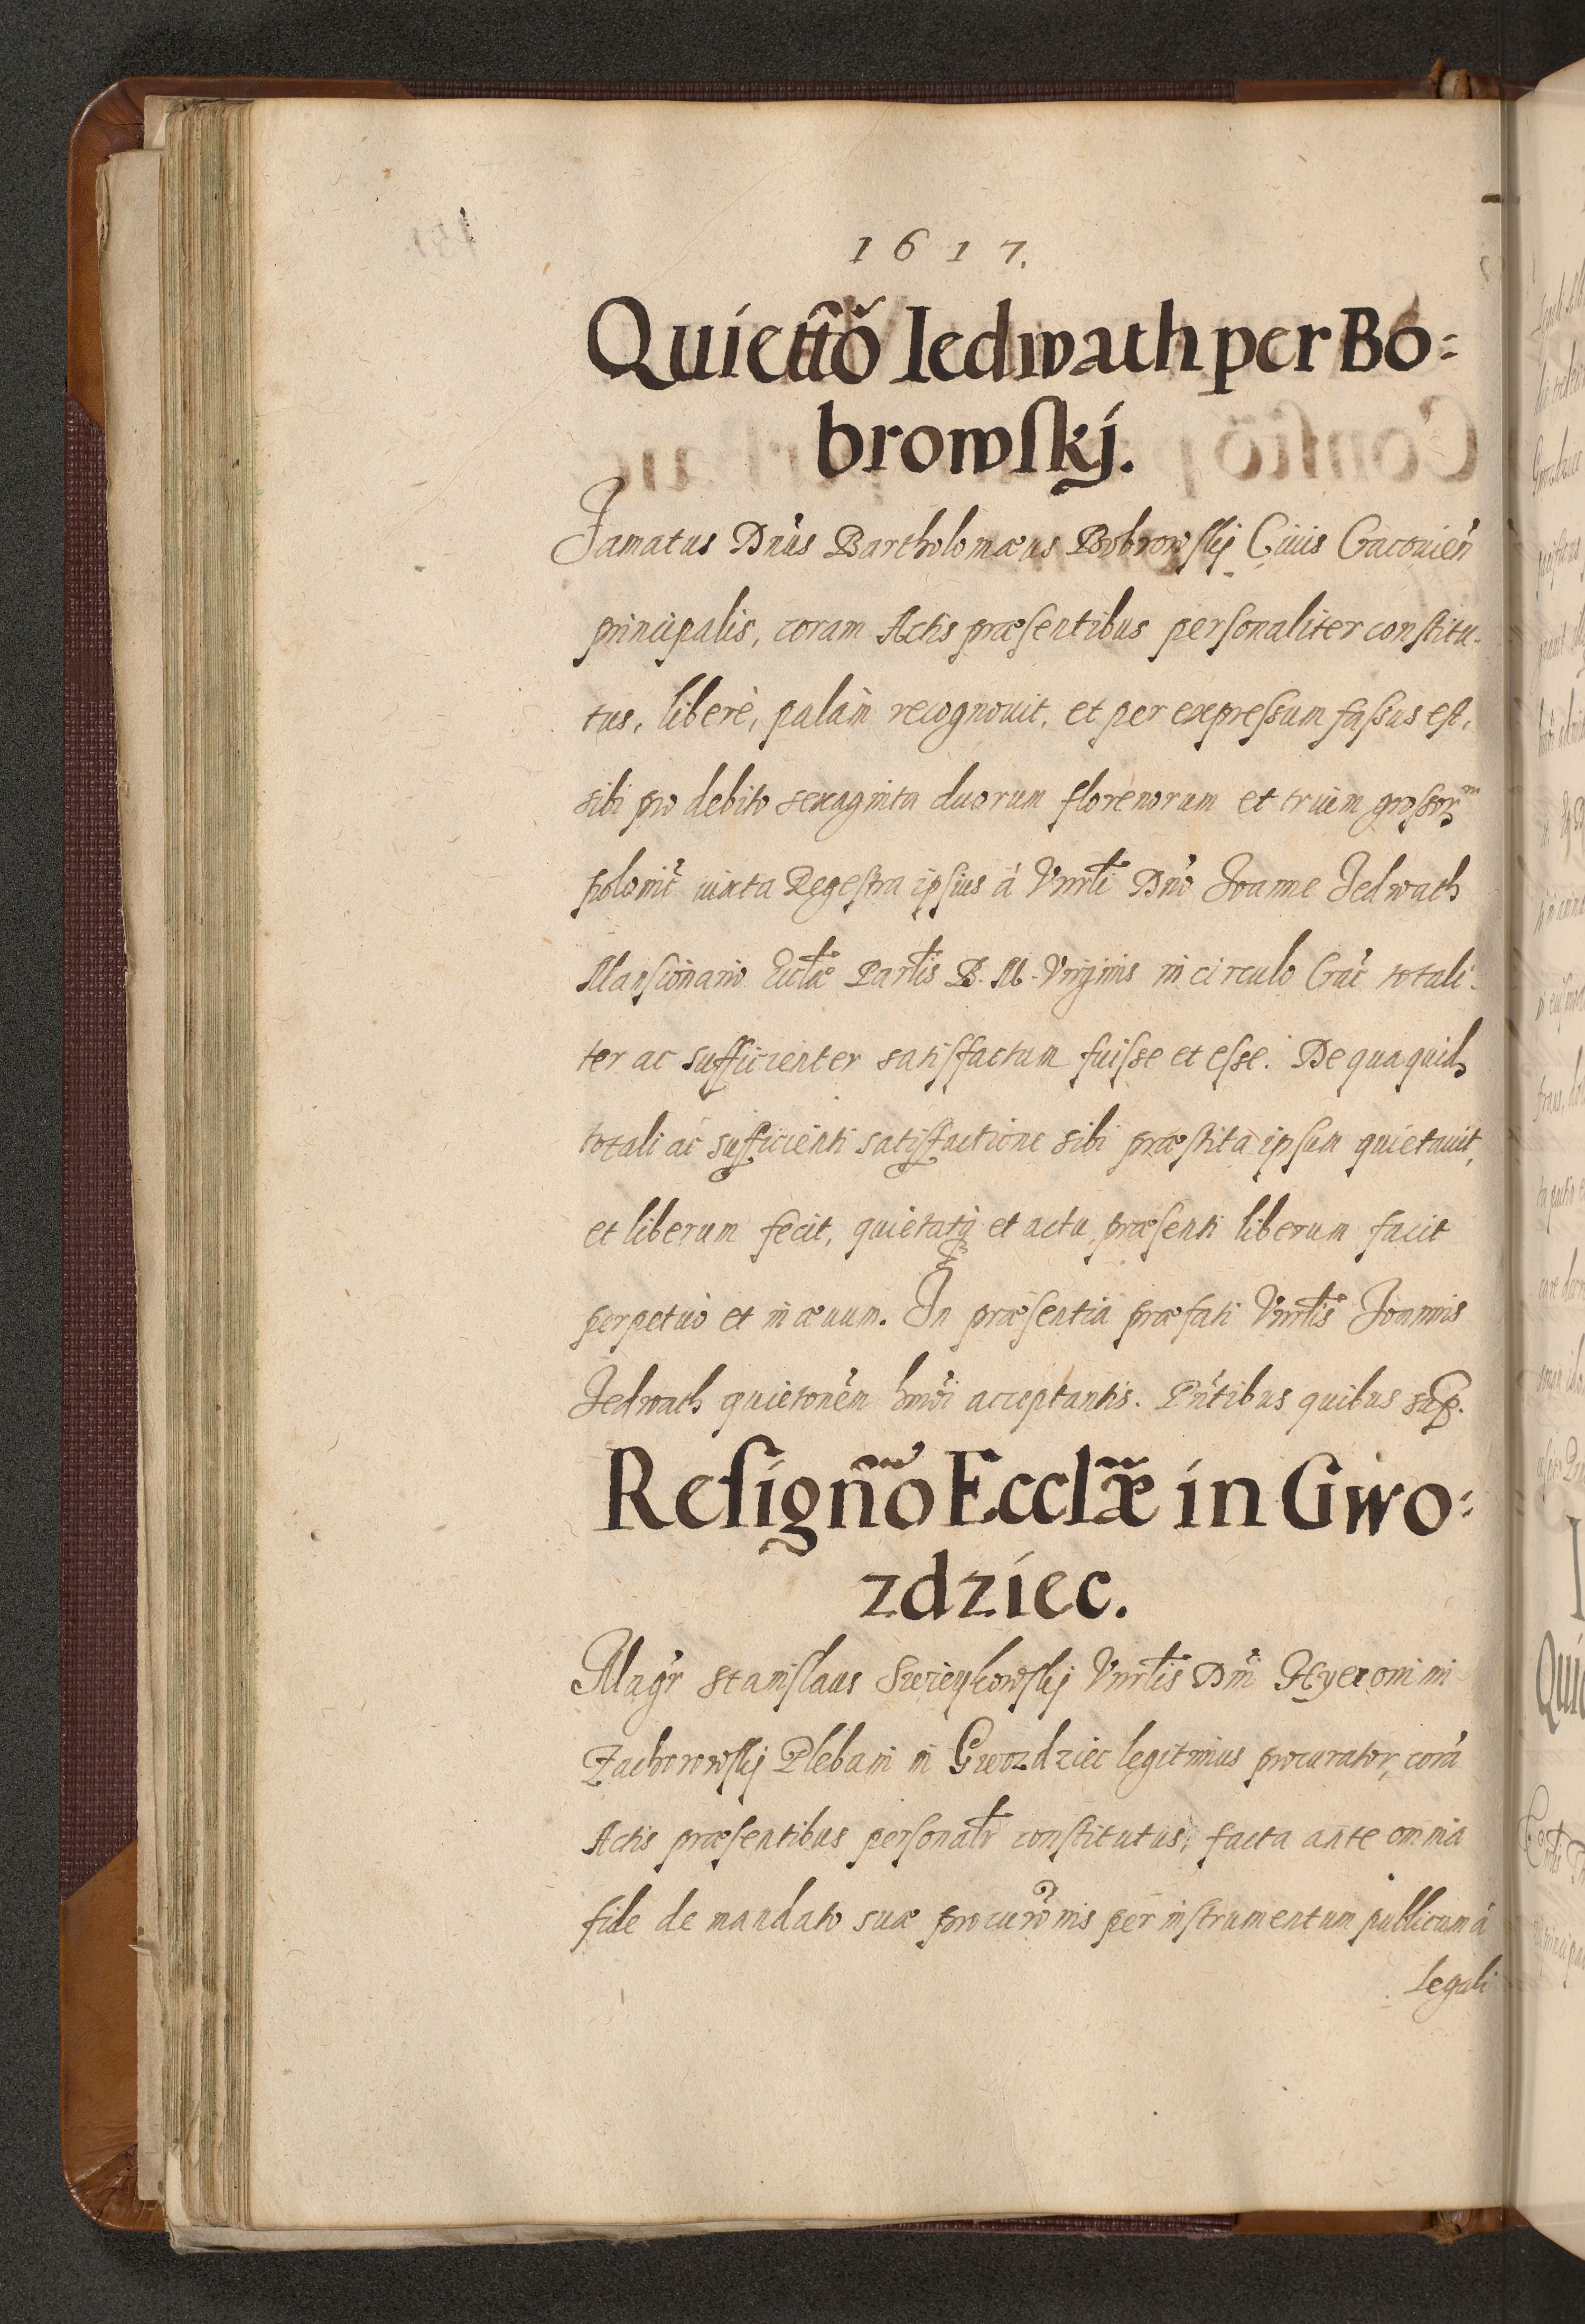 1617.
Quiettõ Iedwath per Bo=
browſkj.
Famatus Dn̄us Bartholomæus Bobrowſkj Ciuis Cracouien̄
principalis, coram Actis præſentibus perſonaliter conſtitu-
tus, liberè, palàm recognouit, et per expreſsum faſsus eſt,
sibi pro debito sexaginta duorum florenorum et trium groſsorꝝ
polonic̄ iuxta Regeſtra ipſius á Vnrłi Dn̄o Joanne Jedwath
Manſionario Eccłæ Parłis B. M. Virginis in circulo Crac̄ totali-
ter ac sufficienter satiſfactum fuiſse et eſse. De qua quidꝫ
totali ac sufficienti satiſfactione sibi præſtita ipſum quietauit,
et liberum fecit, quietatq̃ et actu præſenti liberum facit
perpetuò et in æuum. In præſentia præfati Vnrłis Joannis
Jedwath quietonẽm hmõi acceptantis. Pn̄tibus quibus sup̱.
Reſign̄õ Ecclæ̃ in Gwo=
zdziec.
Magr̄ Staniſlaus Swieykowſkj Vnrłis Dn̄i Hyeronimi
Zachorowſkj Plebani in Gwozdziec legitimus procurator, corã
Actis præſentibus perſonałr conſtitutus, facta ante omnia
fide de mandato suæ procurõnis per inſtrumentum publicum á
legali